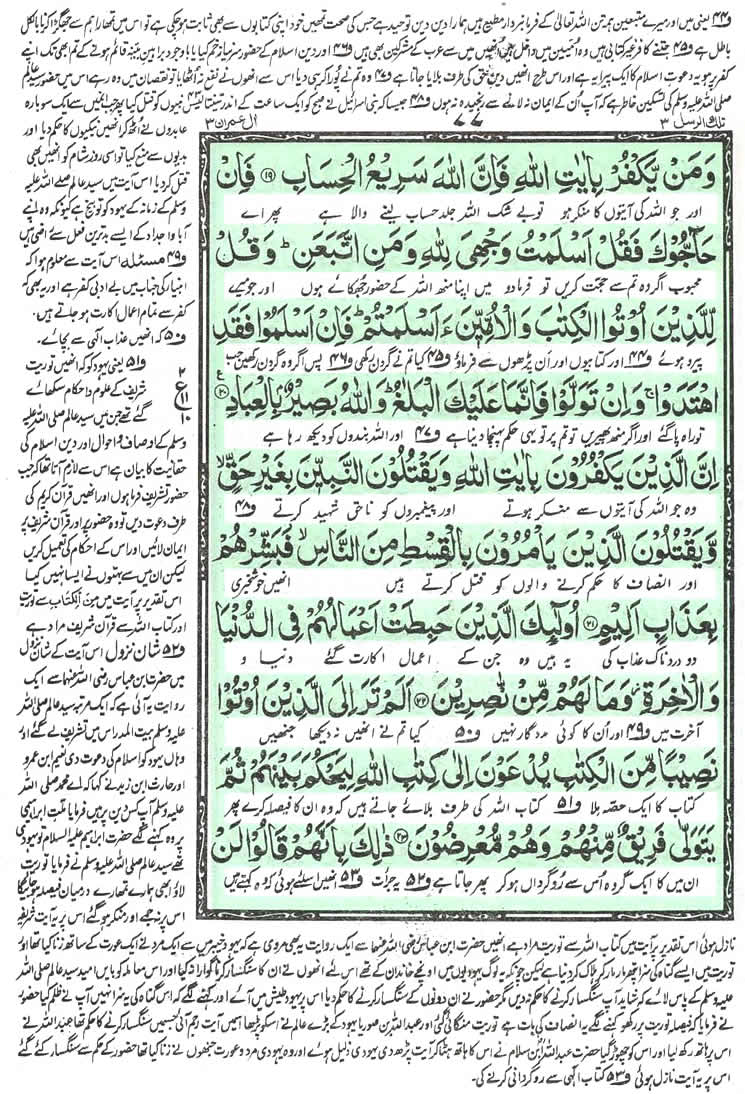 و۴۴ یعنی میں اور میرے متبعین ہمہ تن اللہ تعالیٰ کے فرمانبردار مطیع ہیں ہمارا دین دینِ توحید ہے جس کی صحت تمھیں خود اپنی کتابوں سے بھی ثابت ہوچکی ہے تو اس میں تمھارا ہم سے جھگڑا کرنا بالکل
باطل ہے و۴۵ جتنے کافر غیر کتابی ہیں وہ اُمیین میں داخل ہیں اُنھیں میں سے عرب کے مشرکین بھی ہیں و۴۶ اور دین اسلام کے حضور سر نیاز خم کیا یا باوجود براہین بینہ قائم ہونے کے تم ابھی تک اپنے
کفر پر ہو یہ دعوت اسلام کا ایک پیرایہ ہے اور اس طرح انھیں دین حق کی طرف بلایا جاتا ہے و۴۷ وہ تم نے پورا کر ہی دیا اس سے انھوں نے نفع نہ اٹھایا تو نقصان میں وہ رہے اس میں حضور سید عالم
صلی اللہ علیہ وسلم کی تسکین خاطر ہے کہ آپ اُن کے ایمان نہ لانے سے رنجیدہ نہ ہوں و۴۸ جیسا کہ بنی اسرائیل نے صبح کو ایک ساعت کے اندر تینتالیس نبیوں کو قتل کیا پھر جب اُن میں سے ایک سو بارہ
تلك الرسل ۳ ۷۷ ال عمرٰن ۳
وَمَنْ يَّكْفُرْ بِاٰيٰتِ اللّٰهِ فَاِنَّ اللّٰهَ سَرِيْعُ الْحِسَابِ ﴿۱۹﴾ فَاِنْ
اور جو اللہ کی آیتوں کا منکر ہو تو بے شک اللہ جلد حساب لینے والا ہے پھر اے
حَآجُّوْكَ فَقُلْ اَسْلَمْتُ وَجْهِيَ لِلّٰهِ وَمَنِ اتَّبَعَنِ ؕ وَقُلْ
محبوب اگر وہ تم سے حجت کریں تو فرما دو میں اپنا منھ اللہ کے حضور جھکائے ہوں اور جو میرے
لِّلَّذِيْنَ اُوْتُوا الْكِتٰبَ وَالْاُمِّيّٖنَ ءَاَسْلَمْتُمْ ؕ فَاِنْ اَسْلَمُوْا فَقَدِ
پیرو ہوئے و۴۴ اور کتابیوں اور اَن پڑھوں سے فرماؤ و۴۵ کیا تم نے گردن رکھی و۴۶ پس اگر وہ گردن رکھیں جب
اهْتَدَوْا ۚ وَاِنْ تَوَلَّوْا فَاِنَّمَا عَلَيْكَ الْبَلٰغُ ؕ وَاللّٰهُ بَصِيْرٌۢ بِالْعِبَادِ ﴿۲۰﴾
تو راہ پاگئے اور اگر منھ پھیریں تو تم پر تو یہی حکم پہنچا دینا ہے و۴۷ اور اللہ بندوں کو دیکھ رہا ہے
اِنَّ الَّذِيْنَ يَكْفُرُوْنَ بِاٰيٰتِ اللّٰهِ وَيَقْتُلُوْنَ النَّبِيّٖنَ بِغَيْرِ حَقٍّ ۙ
وہ جو اللہ کی آیتوں سے منکر ہوتے اور پیغمبروں کو ناحق شہید کرتے و۴۸
وَّيَقْتُلُوْنَ الَّذِيْنَ يَاْمُرُوْنَ بِالْقِسْطِ مِنَ النَّاسِ ۙ فَبَشِّرْهُمْ
اور انصاف کا حکم کرنے والوں کو قتل کرتے ہیں انھیں خوشخبری
بِعَذَابٍ اَلِيْمٍ ﴿۲۱﴾ اُولٰٓئِكَ الَّذِيْنَ حَبِطَتْ اَعْمَالُهُمْ فِي الدُّنْيَا
دو دردناک عذاب کی یہ ہیں وہ جن کے اعمال اکارت گئے دنیا و
وَالْاٰخِرَةِ ۫ وَمَا لَهُمْ مِّنْ نّٰصِرِيْنَ ﴿۲۲﴾ اَلَمْ تَرَ اِلَى الَّذِيْنَ اُوْتُوْا
آخرت میں و۴۹ اور اُن کا کوئی مددگار نہیں و۵۰ کیا تم نے انھیں نہ دیکھا جنھیں
نَصِيْبًا مِّنَ الْكِتٰبِ يُدْعَوْنَ اِلٰى كِتٰبِ اللّٰهِ لِيَحْكُمَ بَيْنَهُمْ ثُمَّ
کتاب کا ایک حصہ ملا و۵۱ کتاب اللہ کی طرف بلائے جاتے ہیں کہ وہ ان کا فیصلہ کرے پھر
يَتَوَلّٰى فَرِيْقٌ مِّنْهُمْ وَهُمْ مُّعْرِضُوْنَ ﴿۲۳﴾ ذٰلِكَ بِاَنَّهُمْ قَالُوْا لَنْ
ان میں کا ایک گروہ اُس سے روگرداں ہوکر پھر جاتا ہے و۵۲ یہ جرأت و۵۳ انھیں اسلئے ہوئی کہ وہ کہتے ہیں
عابدوں نے اُٹھ کر انھیں نیکیوں کا حکم دیا اور
بدیوں سے منع کیا تو اسی روز شام کو انھیں بھی
قتل کر دیا اس آیت میں سید عالم صلے اللہ علیہ
وسلم کے زمانہ کے یہود کو توبیخ ہے کیونکہ وہ اپنے
آبا و اجداد کے ایسے بدترین فعل سے راضی ہیں
و۴۹ مسئلہ اس آیت سے معلوم ہوا کہ
انبیا کی جناب میں بے ادبی کفر ہے اور یہ بھی کہ
کفر سے تمام اعمال اکارت ہو جاتے ہیں۔
و۵۰ کہ انھیں عذاب الٰہی سے بچائے۔
و۵۱ یعنی یہود کو کہ انھیں توریت
شریف کے علوم و احکام سکھائے
گئے تھے جن میں سید عالم صلی اللہ علیہ
۲
ع
۱۱
۱۰
وسلم کے اوصاف و احوال اور دین اسلام کی
حقانیت کا بیان ہے اس سے لازم آتا تھا کہ جب
حضور تشریف فرما ہوں اور انھیں قرآن کریم کی
طرف دعوت دیں تو وہ حضور پر اور قرآن شریف پر
ایمان لائیں اور اس کے احکام کی تعمیل کریں
لیکن ان میں سے بہتوں نے ایسا نہیں کیا
اس تقدیر پر آیت میں مِنَ الْکِتٰب سے توریت
اور کتاب اللہ سے قرآن شریف مراد ہے
و۵۲ شان نزول اس آیت کے شان نزول
میں حضرت ابن عباس رضی اللہ عنہما سے ایک
روایت یہ آئی ہے کہ ایک مرتبہ سید عالم صلی اللہ
علیہ وسلم بیت المدراس میں تشریف لے گئے اور
وہاں یہود کو اسلام کی دعوت دی نعیم ابن عمرو
اور حارث ابن زید نے کہا کہ اے محمد صلی اللہ
علیہ وسلم آپ کس دین پر ہیں فرمایا ملت ابراہیمی
پر وہ کہنے لگے حضرت ابراہیم علیہ السلام تو یہودی
تھے سید عالم صلی اللہ علیہ وسلم نے فرمایا توریت
لاؤ ابھی ہمارے تمھارے درمیان فیصلہ ہو جائیگا
اس پر نہ جمے اور منکر ہو گئے اس پر یہ آیت شریفہ
نازل ہوئی اس تقدیر پر آیت میں کتاب اللہ سے توریت مراد ہے انھیں حضرت ابن عباس رضی اللہ عنہما سے ایک روایت یہ بھی مروی ہے کہ یہود خیبر میں سے ایک مرد نے ایک عورت کے ساتھ زنا کیا تھا اور
توریت میں ایسے گناہ کی سزا پتھر مار مار کر ہلاک کر دینا ہے لیکن چونکہ یہ لوگ یہودیوں میں اونچے خاندان کے تھے اس لئے انھوں نے ان کا سنگسار کرنا گوارا نہ کیا اور اس معاملہ کو بایں امید سید عالم صلی اللہ
علیہ وسلم کے پاس لائے کہ شاید آپ سنگسار کرنے کا حکم نہ دیں مگر حضور نے ان دونوں کے سنگسار کرنے کا حکم دیا اس پر یہود طیش میں آئے اور کہنے لگے کہ اس گناہ کی یہ سزا نہیں آپ نے ظلم کیا حضور
نے فرمایا کہ فیصلہ توریت پر رکھو کہنے لگے یہ انصاف کی بات ہے توریت منگائی گئی اور عبداللہ بن صوریا یہود کے بڑے عالم نے اسکو پڑھا اسمیں آیت رجم آئی جس میں سنگسار کرنے کا حکم تھا عبداللہ نے
اس پر ہاتھ رکھ لیا اور اس کو چھوڑ گیا حضرت عبداللہ ابن سلام نے اس کا ہاتھ ہٹا کر آیت پڑھ دی یہودی ذلیل ہوئے اور وہ یہودی مرد و عورت جنھوں نے زنا کیا تھا حضور کے حکم سے سنگسار کئے گئے
اس پر یہ آیت نازل ہوئی و۵۳ کتاب الٰہی سے روگردانی کرنے کی۔